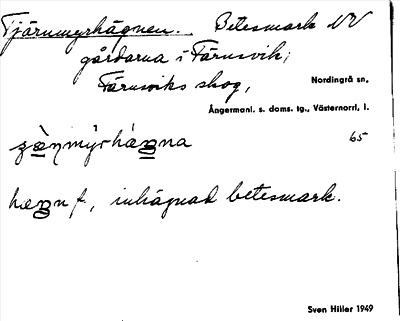 Tjärnmyrhägnen. Betesmark NV
gårdarna i Färnsvik;
Färnsviks skog, Nordingrå sn,
Ångermanl. s. doms. tg., Västernorrl. l.
65
hæŋn f., inhägnad betesmark.
Sven Hiller 1949